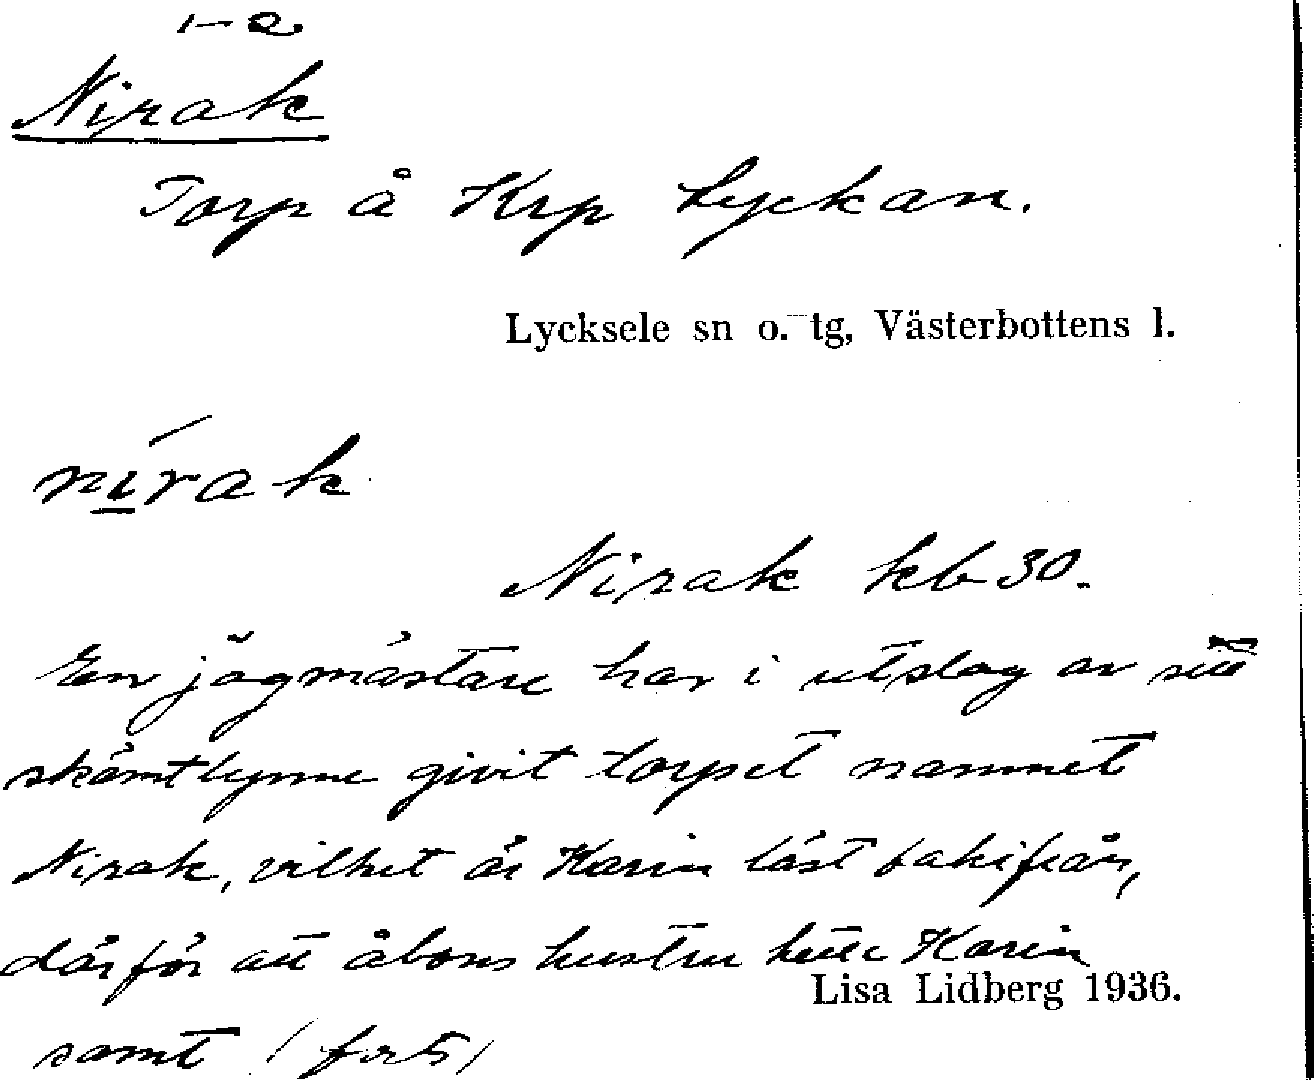 1-2
Nirak
Torp å Krp Lyckan.
Lycksele sn o. tg, Västerbottens l.
nírak
Nirak kb 30.
En jägmästare har i utslag av sitt
skämtlynne givit torpet namnet
Nirak, vilket är Karin läst bakifrån,
därför att åbons hustru hette Karin
Lisa Lidberg 1936.
samt (forts)